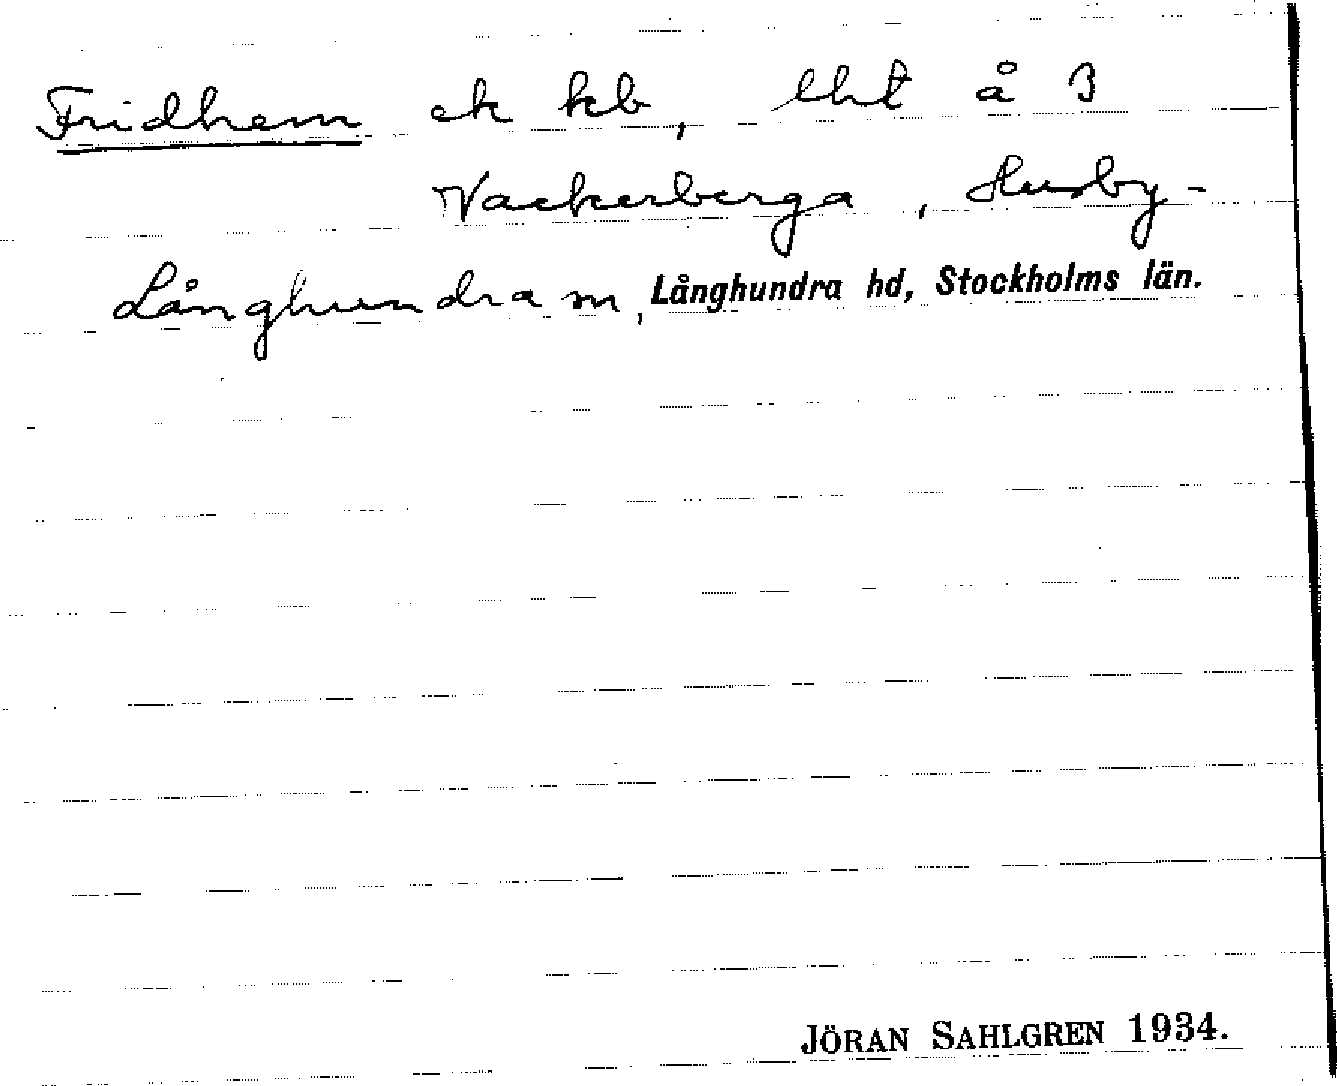 Fridhem ek kb, lht å 3
Vackerberga, Husby-
Långhundra sn, Långhundra hd, Stockholms län.
JÖRAN SAHLGREN 1934.